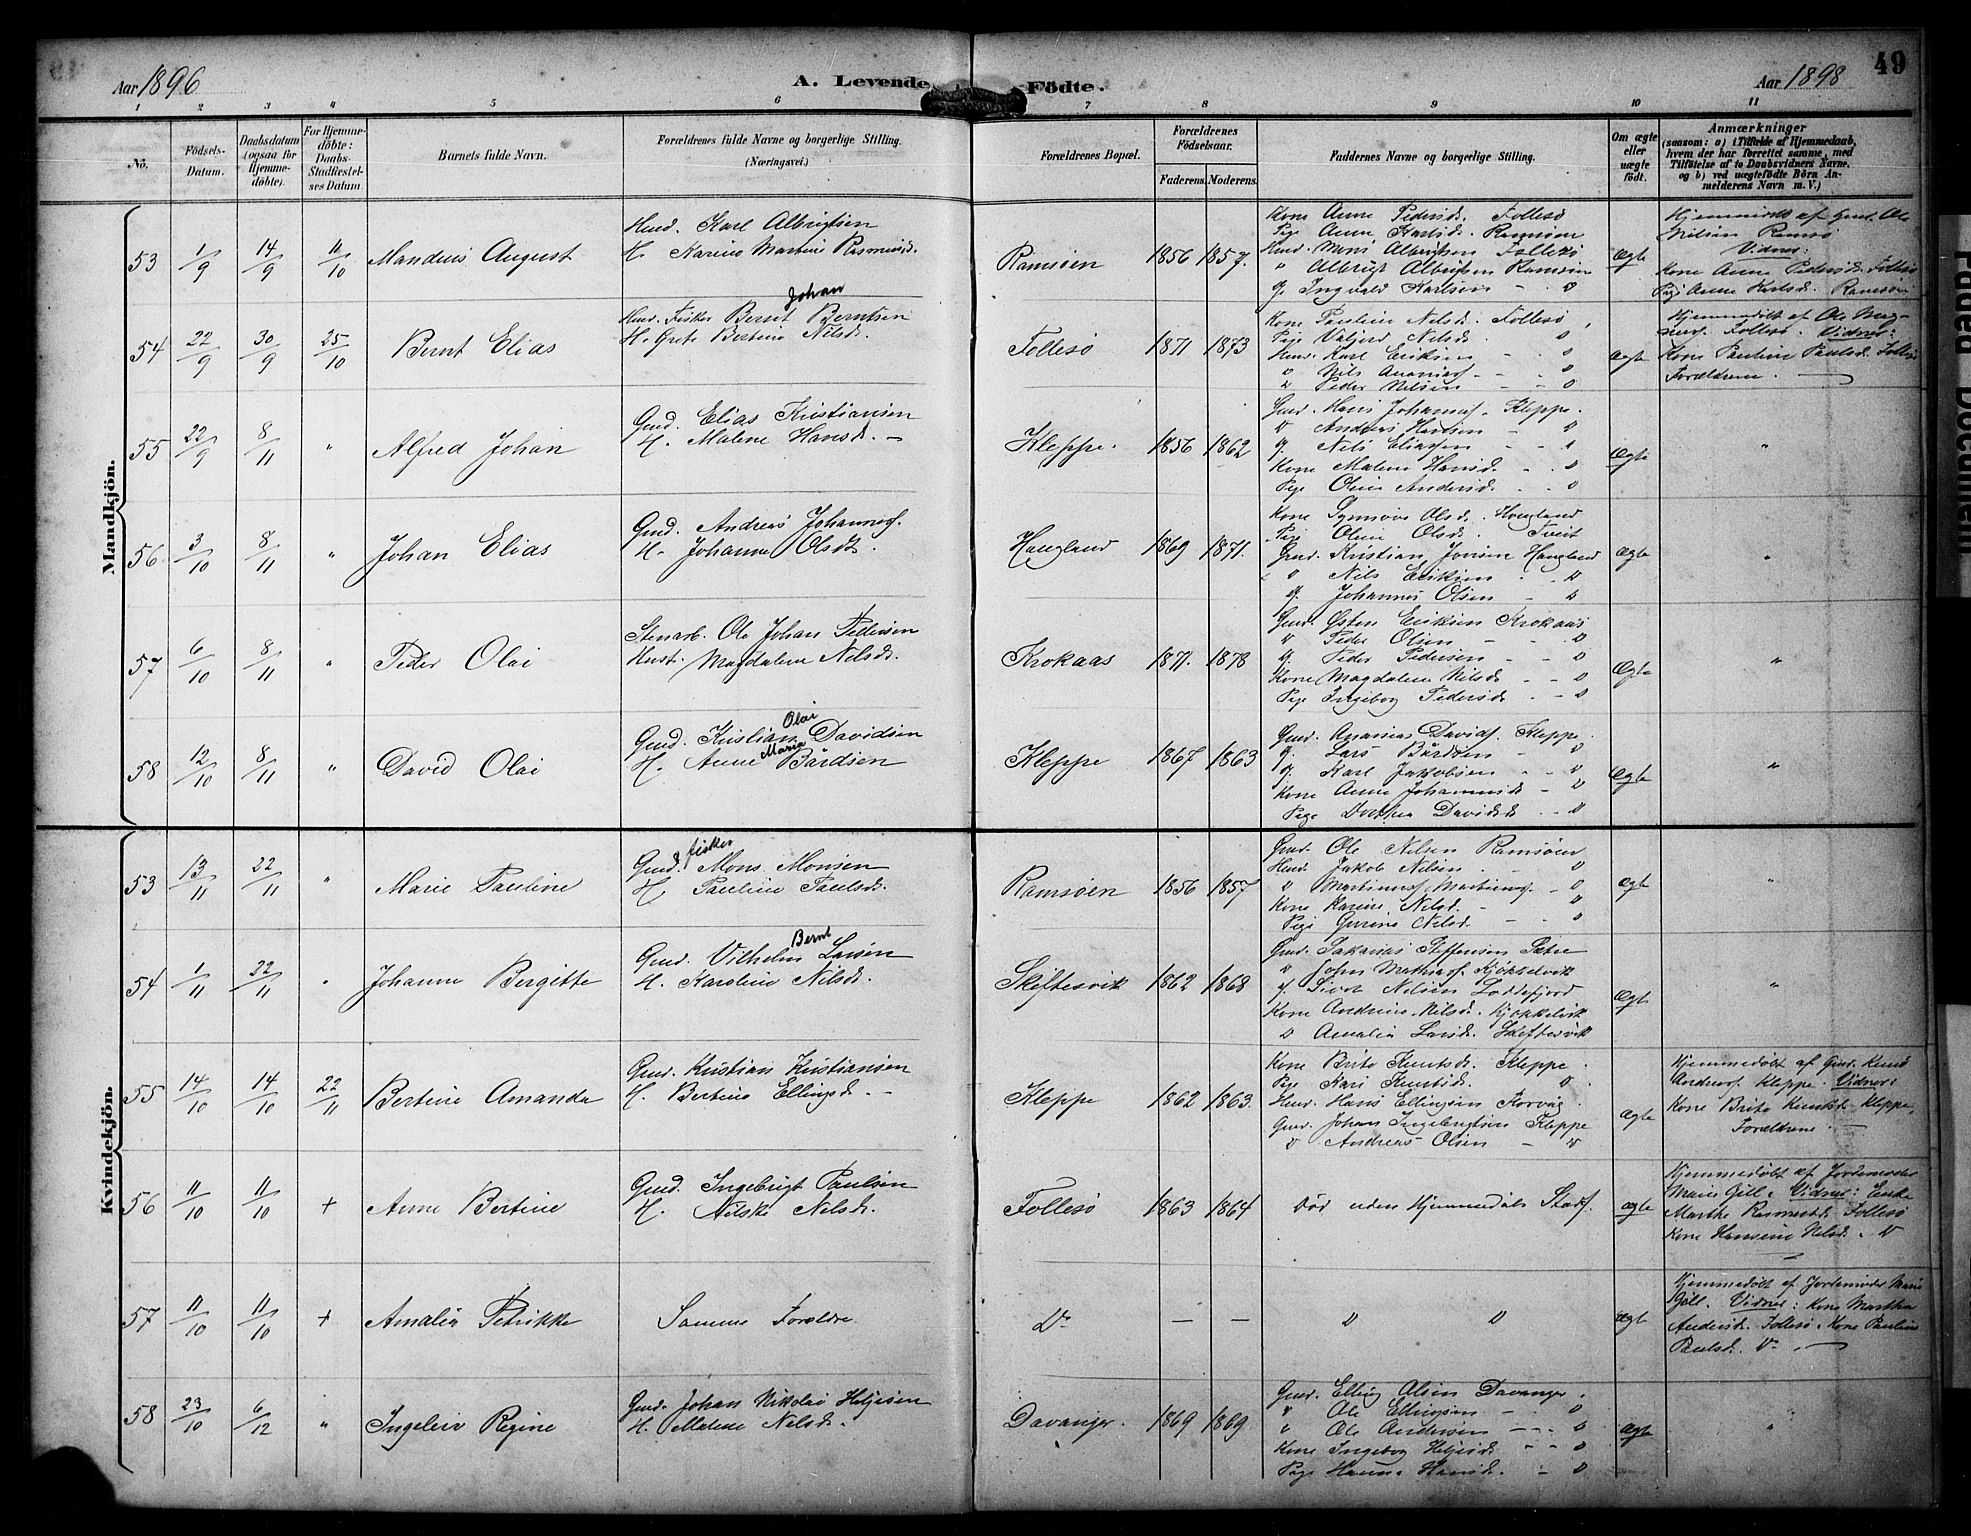 Aar 1896
A. Levende Födte.
Aar 1898
49
1 2 3 4 5 6 7 8 9 10 11
No.
Födsels-Datum.
Daabsdatum (ogsaa for Hjemmedöbte).
For Hjemmedöbte: Daabs-Stadfæstelses Datum.
Barnets fulde Navn.
Forældrenes fulde Navne og borgerlige Stilling. (Næringsvei.)
Forældrenes Bopæl.
Forældrenes Födselsaar.
Faderens. Moderens.
Faddernes Navne og borgerlige Stilling.
Om ægte eller uægte födt.
Anmærkninger
(saasom: a) i Tilfælde af Hjemmedaab, hvem der har forrettet samme, med Tilföielse af to Daabsvidners Navne, og b) ved uægtefödte Börn Anmelderens Navn m. V.)
Mandkjön.
53 1/9 14/9 11/10 Mandius August
Huusd. Karl Albrigtsen
H. Karine Martine Rasmusd.
Ramsöen 1856 1857.
Kone Anne Pedersd. Follesö
Pige Anne Karlsd. Ramsöen
Huusd. Mons Albrigtsen Follesö
" Albrigt Albrigtsen Ramsöen
G. Ingvald Karlsen - "
Ægte
Hjemmedöbt af Gmd. Ole
Nilsen Ramsö
Vidner:
Kone Anne Pedersd. Follesö
Pige Anne Karlsd. Ramsöen
54 22/9 30/9 25/10 Bernt Elias
Johan
Huusd. Fisker Bernt Berntsen
H. Grete Bertine Nilsd.
Follesö 1871 1873
Kone Pauline Nilsd. Follesö
Pige Valgjerd Nilsd. "
Huusd. Karl Eriksen - "
" Nils Ananiasf. - "
" Peder Nilsen - "
Ægte
Hjemmedöbt af Ole Magnusf. Follesö. Vidner:
Kone Pauline Paulsd. Follesö
Forældrene.
55 22/9 8/11 " Alfred Johan
Gmd. Elias Kristiansen
H. Malene Hansd. -
Kleppe. 1856 1862
Gmd. Hans Johannesf. Kleppe.
" Andreas Hansen - "
G. Nils Eliassen - "
Kone Malene Hansd. - "
Pige Oline Andersd. - "
Ægte "
56 3/10 8/11 " Johan Elias
Gmd. Andreas Johannesf.
H. Johanne Olsdt.
Haugland 1869 1871.
Kone Synnöve Olsd. Haugland
Pige Oline Olsd. Tveit
Gmd. Kristian Jonsen Haugland
" Nils Eriksen - "
G. Johannes Olsen - "
Ægte "
57 6/10 8/11 " Peder Olai
Stenarb. Ole Johan Pedersen
Hust. Magdalene Nilsd.
Krokaas 1871. 1878
Gmd. Östen Eriksen Krokaas
" Peder Olsen - "
G. Peder Pedersen - "
Kone Magdalene Nilsd. - "
Pige Ingeborg Pedersd. - "
Ægte "
58 12/10 8/11 " David Olai
Olai
Gmd. Kristian Davidsen
Maria
H. Anne Bårdsen
Kleppe 1867 1863
Gmd. Ananias Davidsf. Kleppe
G. Lars Bårdsen - "
G. Karl Jakobsen - "
Kone Anne Johannesd. - "
Pige Dorthea Davidsd. - "
Ægte "
Kvindekjön.
53 13/11 22/11 " Marie Pauline
fisker
Gmd. Mons Monsen
H. Pauline Paulsd.
Ramsöen 1856 1857
Gmd. Ole Nilsen Ramsöen
Huusd. Jakob Nilsen - "
" Martinusf. Martinusf. - "
Kone Karine Nilsd. - "
Pige Gurine Nilsd. - "
Ægte "
54 1/11 22/11 " Johanne Bergitte
Bernt
Gmd. Vilhelm Larsen
H. Karoline Nilsd.
Skiftesvik 1862 1868
Gmd. Sakarias Steffensen Sætre
" John Mathiasf. Kjökkelvik
G. Sivert Nilsen Loddefjord
Kone Andrine Nilsd. Kjökkelvik
" Amalia Larsd. Skiftesvik
Ægte "
55 14/10 14/10 22/11 Bertine Amanda
Gmd. Kristian Kristiansen
H. Bertine Ellingsd. -
Kleppe 1862 1863.
Kone Brita Knutsd. Kleppe
Pige Kari Knutsd. "
Huusd. Hans Ellingsen Forvåg
Gmd. Johan Ingebrigtsen Kleppe
" Andreas Olsen - "
Ægte
Hjemmedöbt af Gmd. Knud
Andersf. Kleppe. Vidner:
Kone Brita Knutsd. Kleppe,
Forældrene.
56 11/10 11/10 + Anne Bertine
Gmd. Ingebrigt Paulsen
H. Nilske Nilsd.
Follesö 1863 1864
Död uden Hjemmedaabs Stadf.
Ægte
Hjemmedöbt af Jordemoder
Marie Gjill. Vidner: Enke
Marthe Rasmusd. Follesö
Kone Hansine Nilsd. "
57 11/10 11/10 + Amalia Petrikke
Samme Forældre
Do — — " "
Ægte
Hjemmedöbt af Jordemoder Marie
Gjill. Vidner: Kone Martha
Andersd. Follesö, Kone Pauline
Paulsd. Do
58 23/10 6/12 " Ingeleiv Regine
Gmd. Johan Nikolai Heljesen
H. Malene Nilsd.
Davanger. 1869 1869
Gmd. Elling Olsen Davanger.
" Ole Ellingsen - "
" Ole Andersen - "
Kone Ingeborg Heljesd. - "
Pige Hanna Hansd. - "
Ægte "